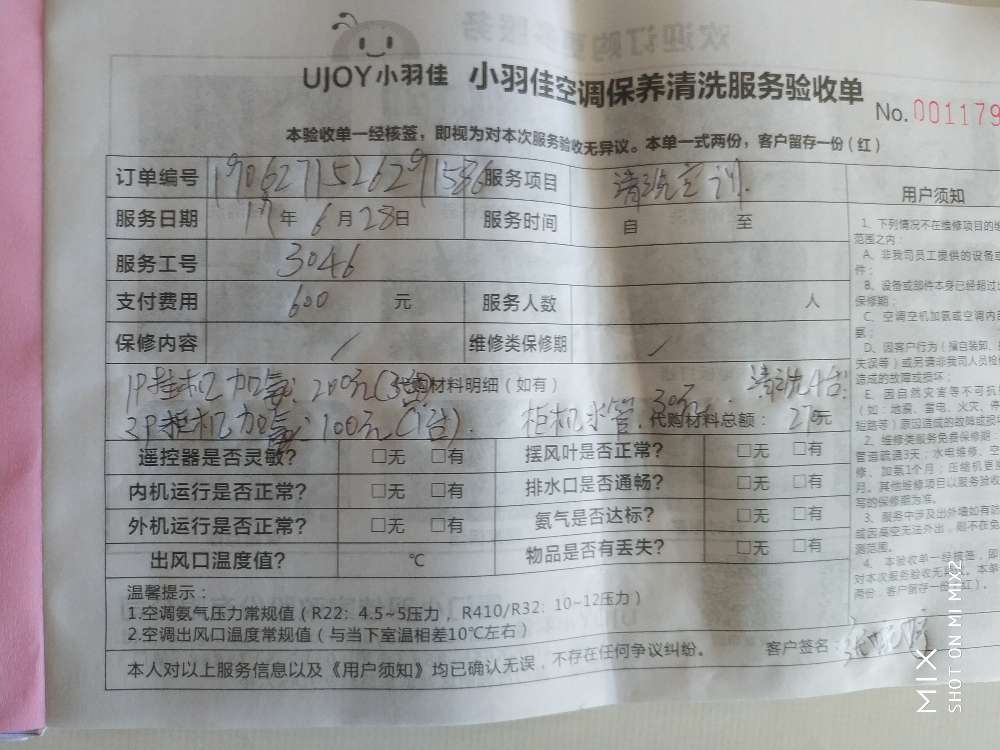 UJOY小羽佳 小羽佳空调保养清洗服务验收单
No. 001179
本验收单一经核签，即视为对本次服务验收无异议。本单一式两份，客户留存一份（红）
订单编号 190627152629158 服务项目 清洗空调.
服务日期 19年 6月28日 服务时间 自 至
服务工号 3046
支付费用 600 元 服务人数 人
保修内容 / 维修类保修期 /
代购材料明细（如有）
1P挂机加氨: 200元 清洗4台
3P柜机加氨: 100元(1台). 柜机水管. 30元 代购材料总额： 270元
遥控器是否灵敏? □无 □有 摆风叶是否正常? □无 □有
内机运行是否正常? □无 □有 排水口是否通畅? □无 □有
外机运行是否正常? □无 □有 氨气是否达标? □无 □有
出风口温度值? ℃ 物品是否有丢失? □无 □有
温馨提示：
1.空调氨气压力常规值（R22：4.5~5压力，R410/R32：10~12压力）
2.空调出风口温度常规值（与当下室温相差10℃左右）
本人对以上服务信息以及《用户须知》均已确认无误，不存在任何争议纠纷。 客户签名：
用户须知
1、下列情况不在维修项目的维
范围之内：
A、非我司员工提供的设备或
件；
B、设备或部件本身已经超过
保修期；
C、空调空机加氨或空调内部
D、因客户行为（擅自装卸、
失误等）或另请非我司人员检
造成的故障或损坏；
E、因自然灾害等不可抗
（如：地震、雷电、火灾、
短路等）原因造成的故障或损
2、维修类服务免费保修期：
管道疏通3天；水电维修、空
修、加氨1个月；压缩机更
月。其他维修项目以服务验收
写的保修期为准。
3、服务中涉及出外墙如有
或因高空无法外出，则不在
测范围。
4、本验收单一经核签，即
对本次服务验收无
两份，客户留存一份（红）。
MIX
SHOT ON MI MIX2